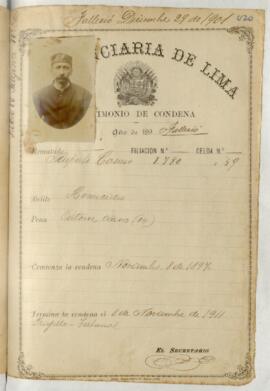 Falleció Diciembre 29 de 1901
420
NCIARIA DE LIMA
IMONIO DE CONDENA
de 189 Falleció
Rematado FILIACIÓN N.° 1.780 CELDA N.° 59
Delito Homicidio
Pena Catorce años (14)
Comienza la condena Noviembre 8 de 1897
Termina la condena el 8 de Noviembre de 1911
EL SECRETARIO